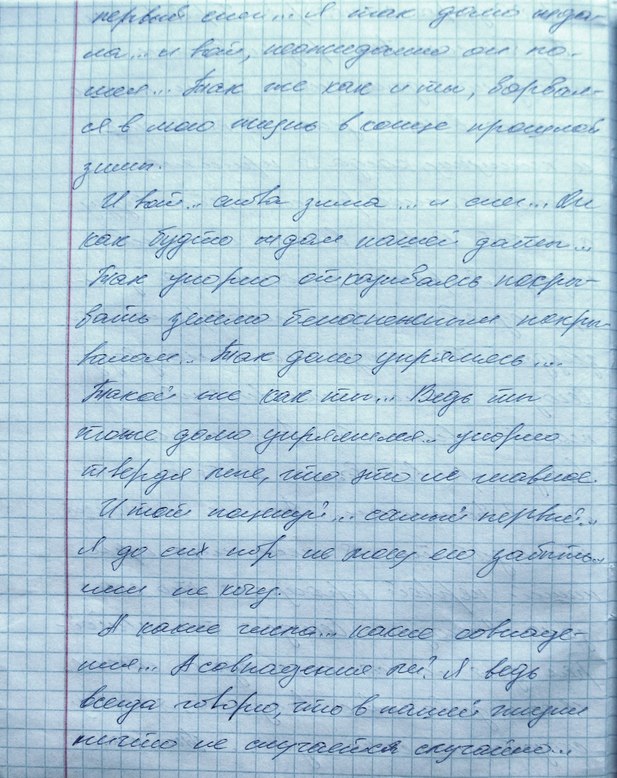 первый снег... Я так долго ждa-
ла... и вот, неожиданно он по-
шел... Так же как и ты, ворвал-
ся в мою жизнь в конце прошлой
зимы.
И вот.. снова зима... и снег... Он
как будто ждал нашей даты...
Так упорно отказываясь покры-
вать землю белоснежным покры-
валом.. Так долго упрямясь...
Такой же как ты... Ведь ты
тоже долго упрямился.. упорно
твердя мне, что это не главное.
И той поцелуй... самый первый...
Я до сих пор не могу его забыть..
или не хочу.
А какие числа... какие совпаде-
ния... А совпадения ли? Я ведь
всегда говорю, что в нашей жизни
ничто не случается случайно..